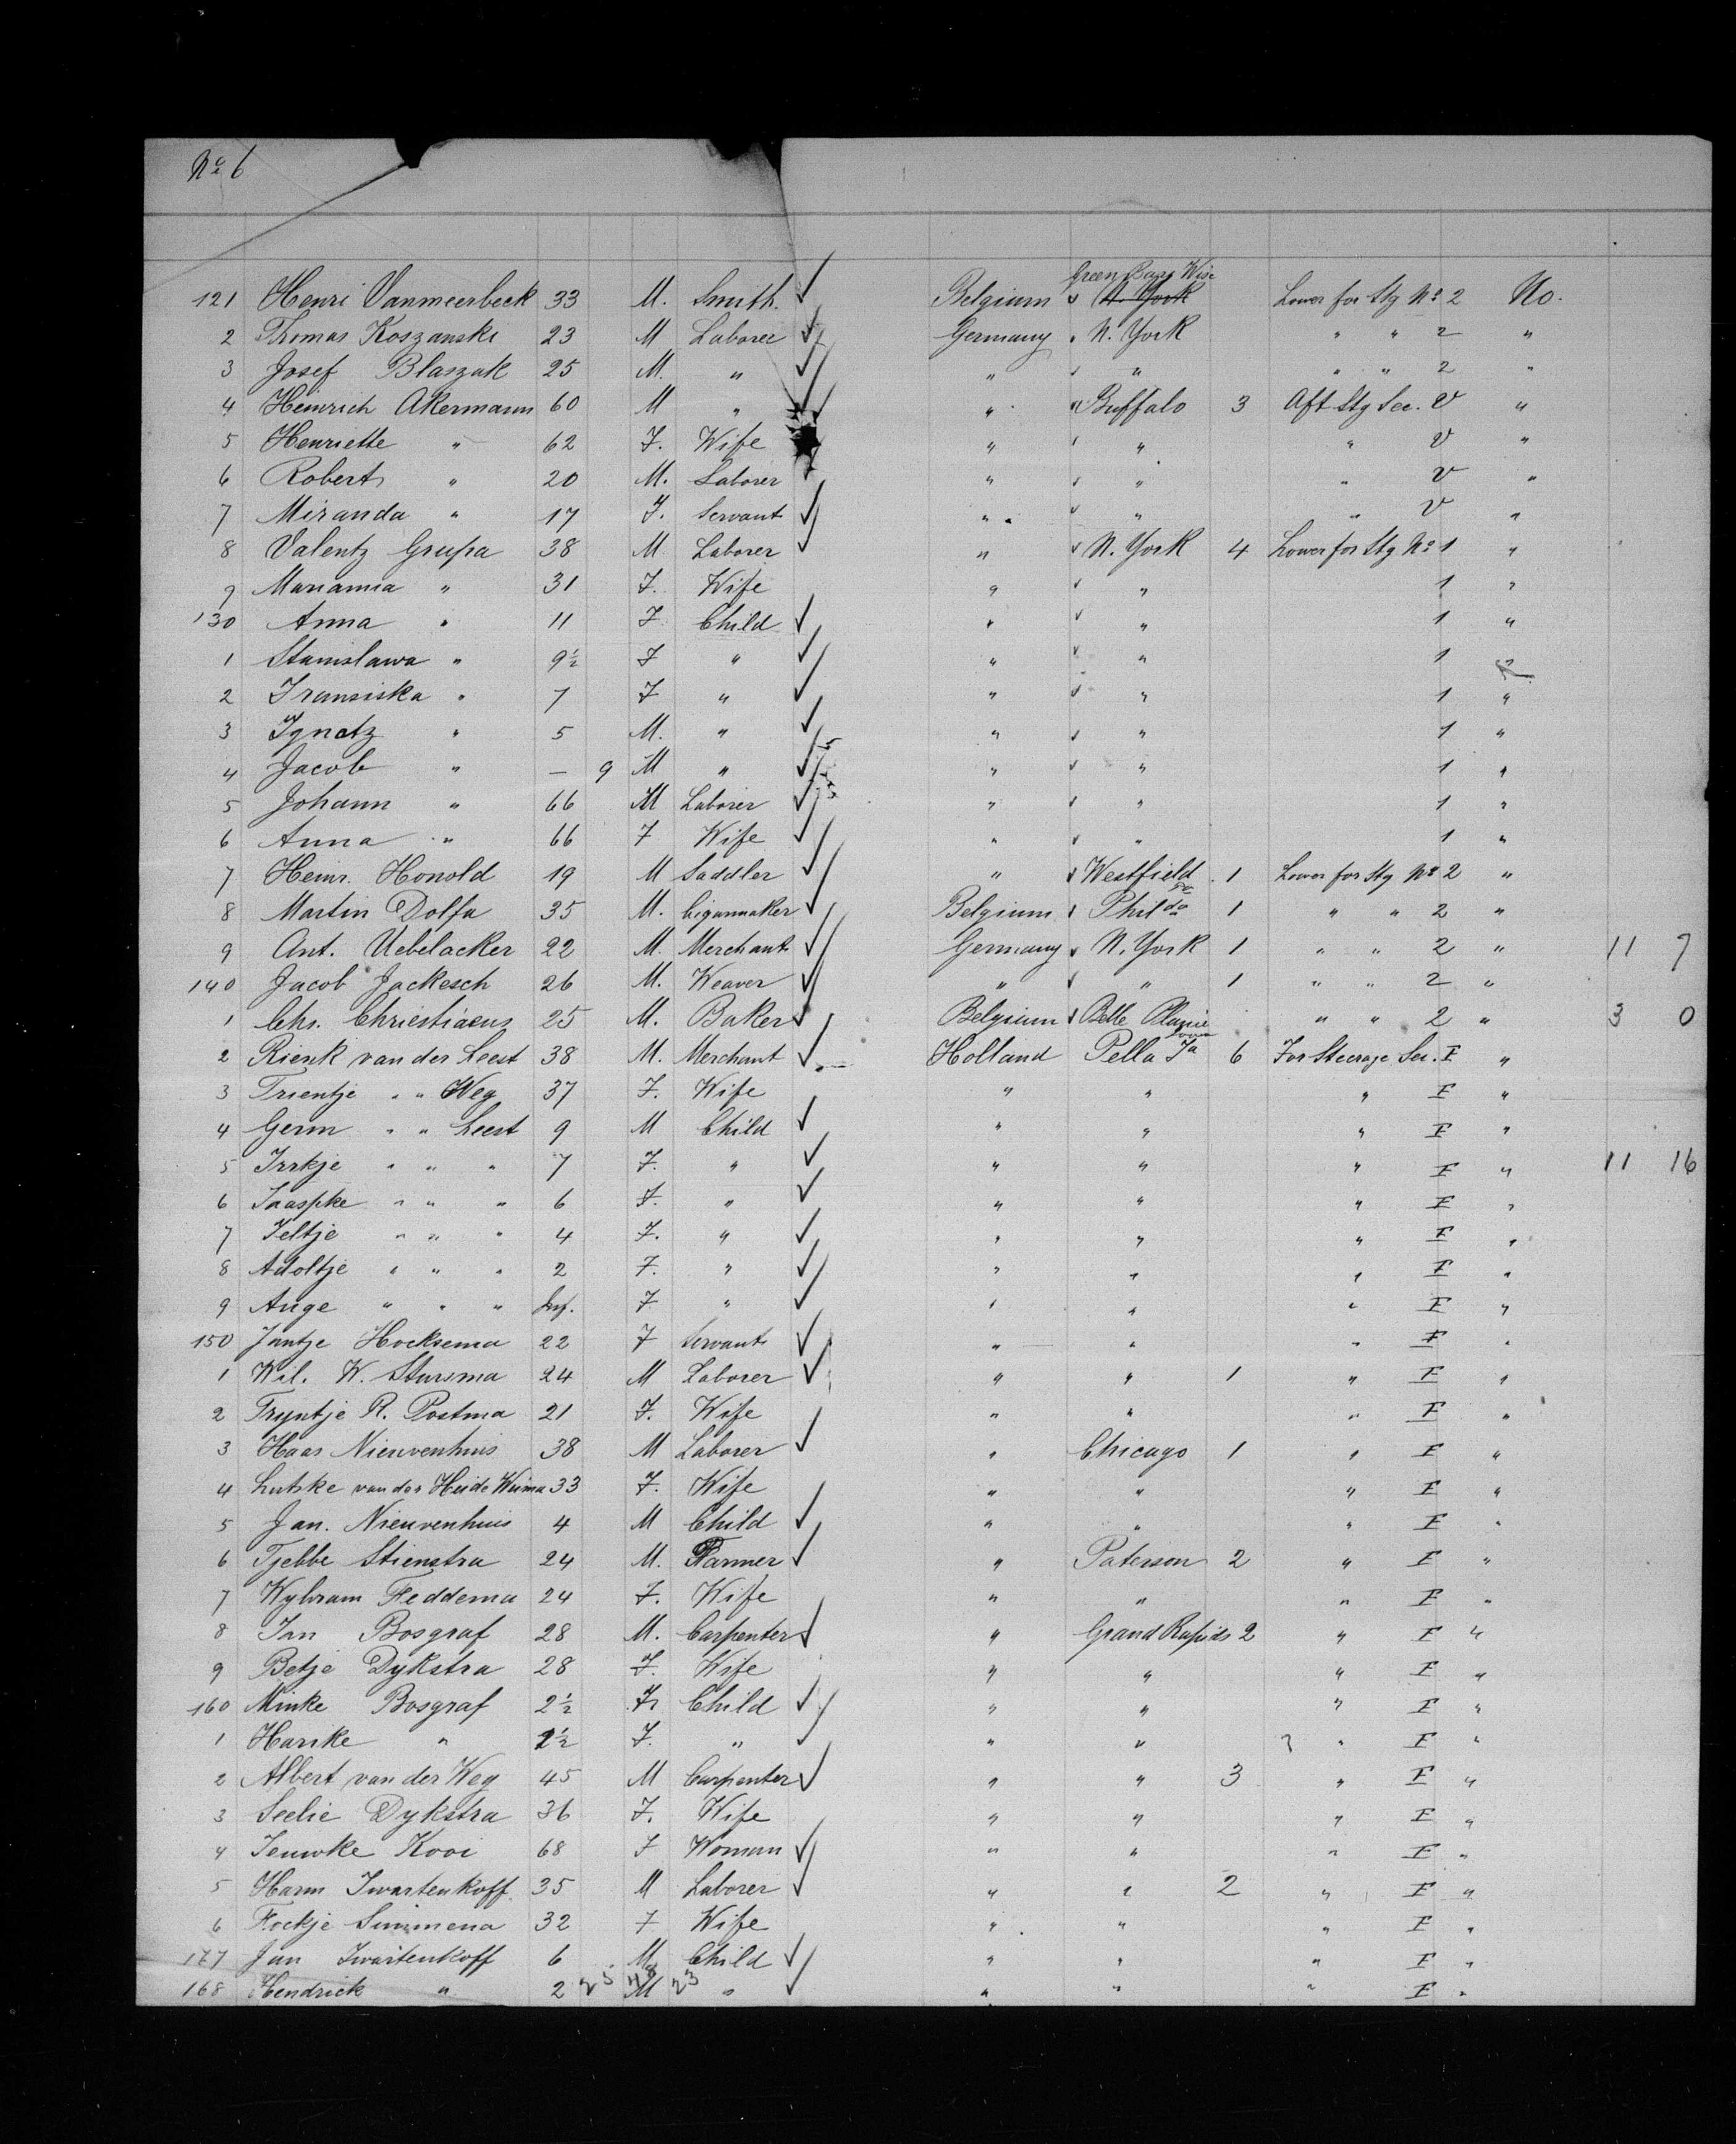 No 6
Green Bay Wisc
121 Henri Vanmeerbeek 33 M. Smith. Belgium N. York Lower for Stg No 2 No.
2 Thomas Koszanski 23 M Laborer Germany N. York " " 2 "
3 Josef Blaszak 25 M. " " " " " 2 "
4 Heinrich Akermann 60 M " " Buffalo 3 Aft Stg Sec. V "
5 Henriette " 62 F. Wife " " " V "
6 Robert " 20 M. Laborer " " " V "
7 Miranda " 17 F. Servant " " " V "
8 Valentz Grupa 38 M Laborer " N. York 4 Lower for Stg No 1 "
9 Marianna " 31 F. Wife " " 1 "
130 Anna " 11 F Child " " 1 "
1 Stanislawa " 9½ F " " " 1 "
2 Fransiska " 7 F " " " 1 "
3 Ignatz " 5 M. " " " 1 "
4 Jacob " — 9 M " " " 1 "
5 Johann " 66 M Laborer " " 1 "
6 Anna " 66 F Wife " " 1 "
7 Heinr. Honold 19 M Saddler " Westfield 1 Lower for Stg No 2 "
8 Martin Dolfa 35 M. Cigarmaker Belgium Phil 1 " " 2 "
9 Ant. Uebelacker 22 M. Merchant Germany N. York 1 " " 2 " 11 7
140 Jacob Jackesch 26 M. Weaver " " 1 " " 2 "
1 Chs. Christiaens 25 M. Baker Belgium Belle Plaine " " 2 " 3 0
2 Rienk van der Leest 38 M. Merchant Holland Pella Ia 6 For Steerage Sec. F "
3 Trientje " " Weg 37 F. Wife " " " F "
4 Germ " " Leest 9 M Child " " " F "
5 " " " 7 F. " " " " F " 11 16
6 " " " 6 F. " " " " F "
7 Jeltje " " " 4 F. " " " " F "
8 Adoltje " " " 2 F. " " " " F "
9 Auge " " " Inf. F " " " " F "
150 Jantje Hocksema 22 F Servant " " " F "
1 Wil. W. Stursma 24 M Laborer " " 1 " F "
2 Tryntje R. Postma 21 F. Wife " " " F "
3 Haas Nieuvenhuis 38 M Laborer " Chicago 1 " F "
4 Lutske van der Heide 33 F. Wife " " " F "
5 Jan. Nieuvenhuis 4 M Child " " " F "
6 Tjebbe Stienstra 24 M. Farmer " Paterson 2 " F "
7 Wybram Feddema 24 F. Wife " " " F "
8 Jan Bosgraf 28 M. Carpenter " Grand Rapids 2 " F "
9 Betje Dykstra 28 F. Wife " " " F "
160 Minke Bosgraf 2½ F. Child " " " F "
1 Hanke " 2½ F. " " " " F "
2 Albert van der Weg 45 M Carpenter " " 3 " F "
3 Seelie Dykstra 36 F. Wife " " " F "
4 Jeuwke Kooi 68 F Woman " " " F "
5 Harm Iwartenkoff 35 M Laborer " " 2 " F "
6 Fockje Simmena 32 F Wife " " " F "
177 Jan Iwartenkoff 6 M Child " " " F "
168 Hendrick " 2 25 M 48 23 " " " " F "